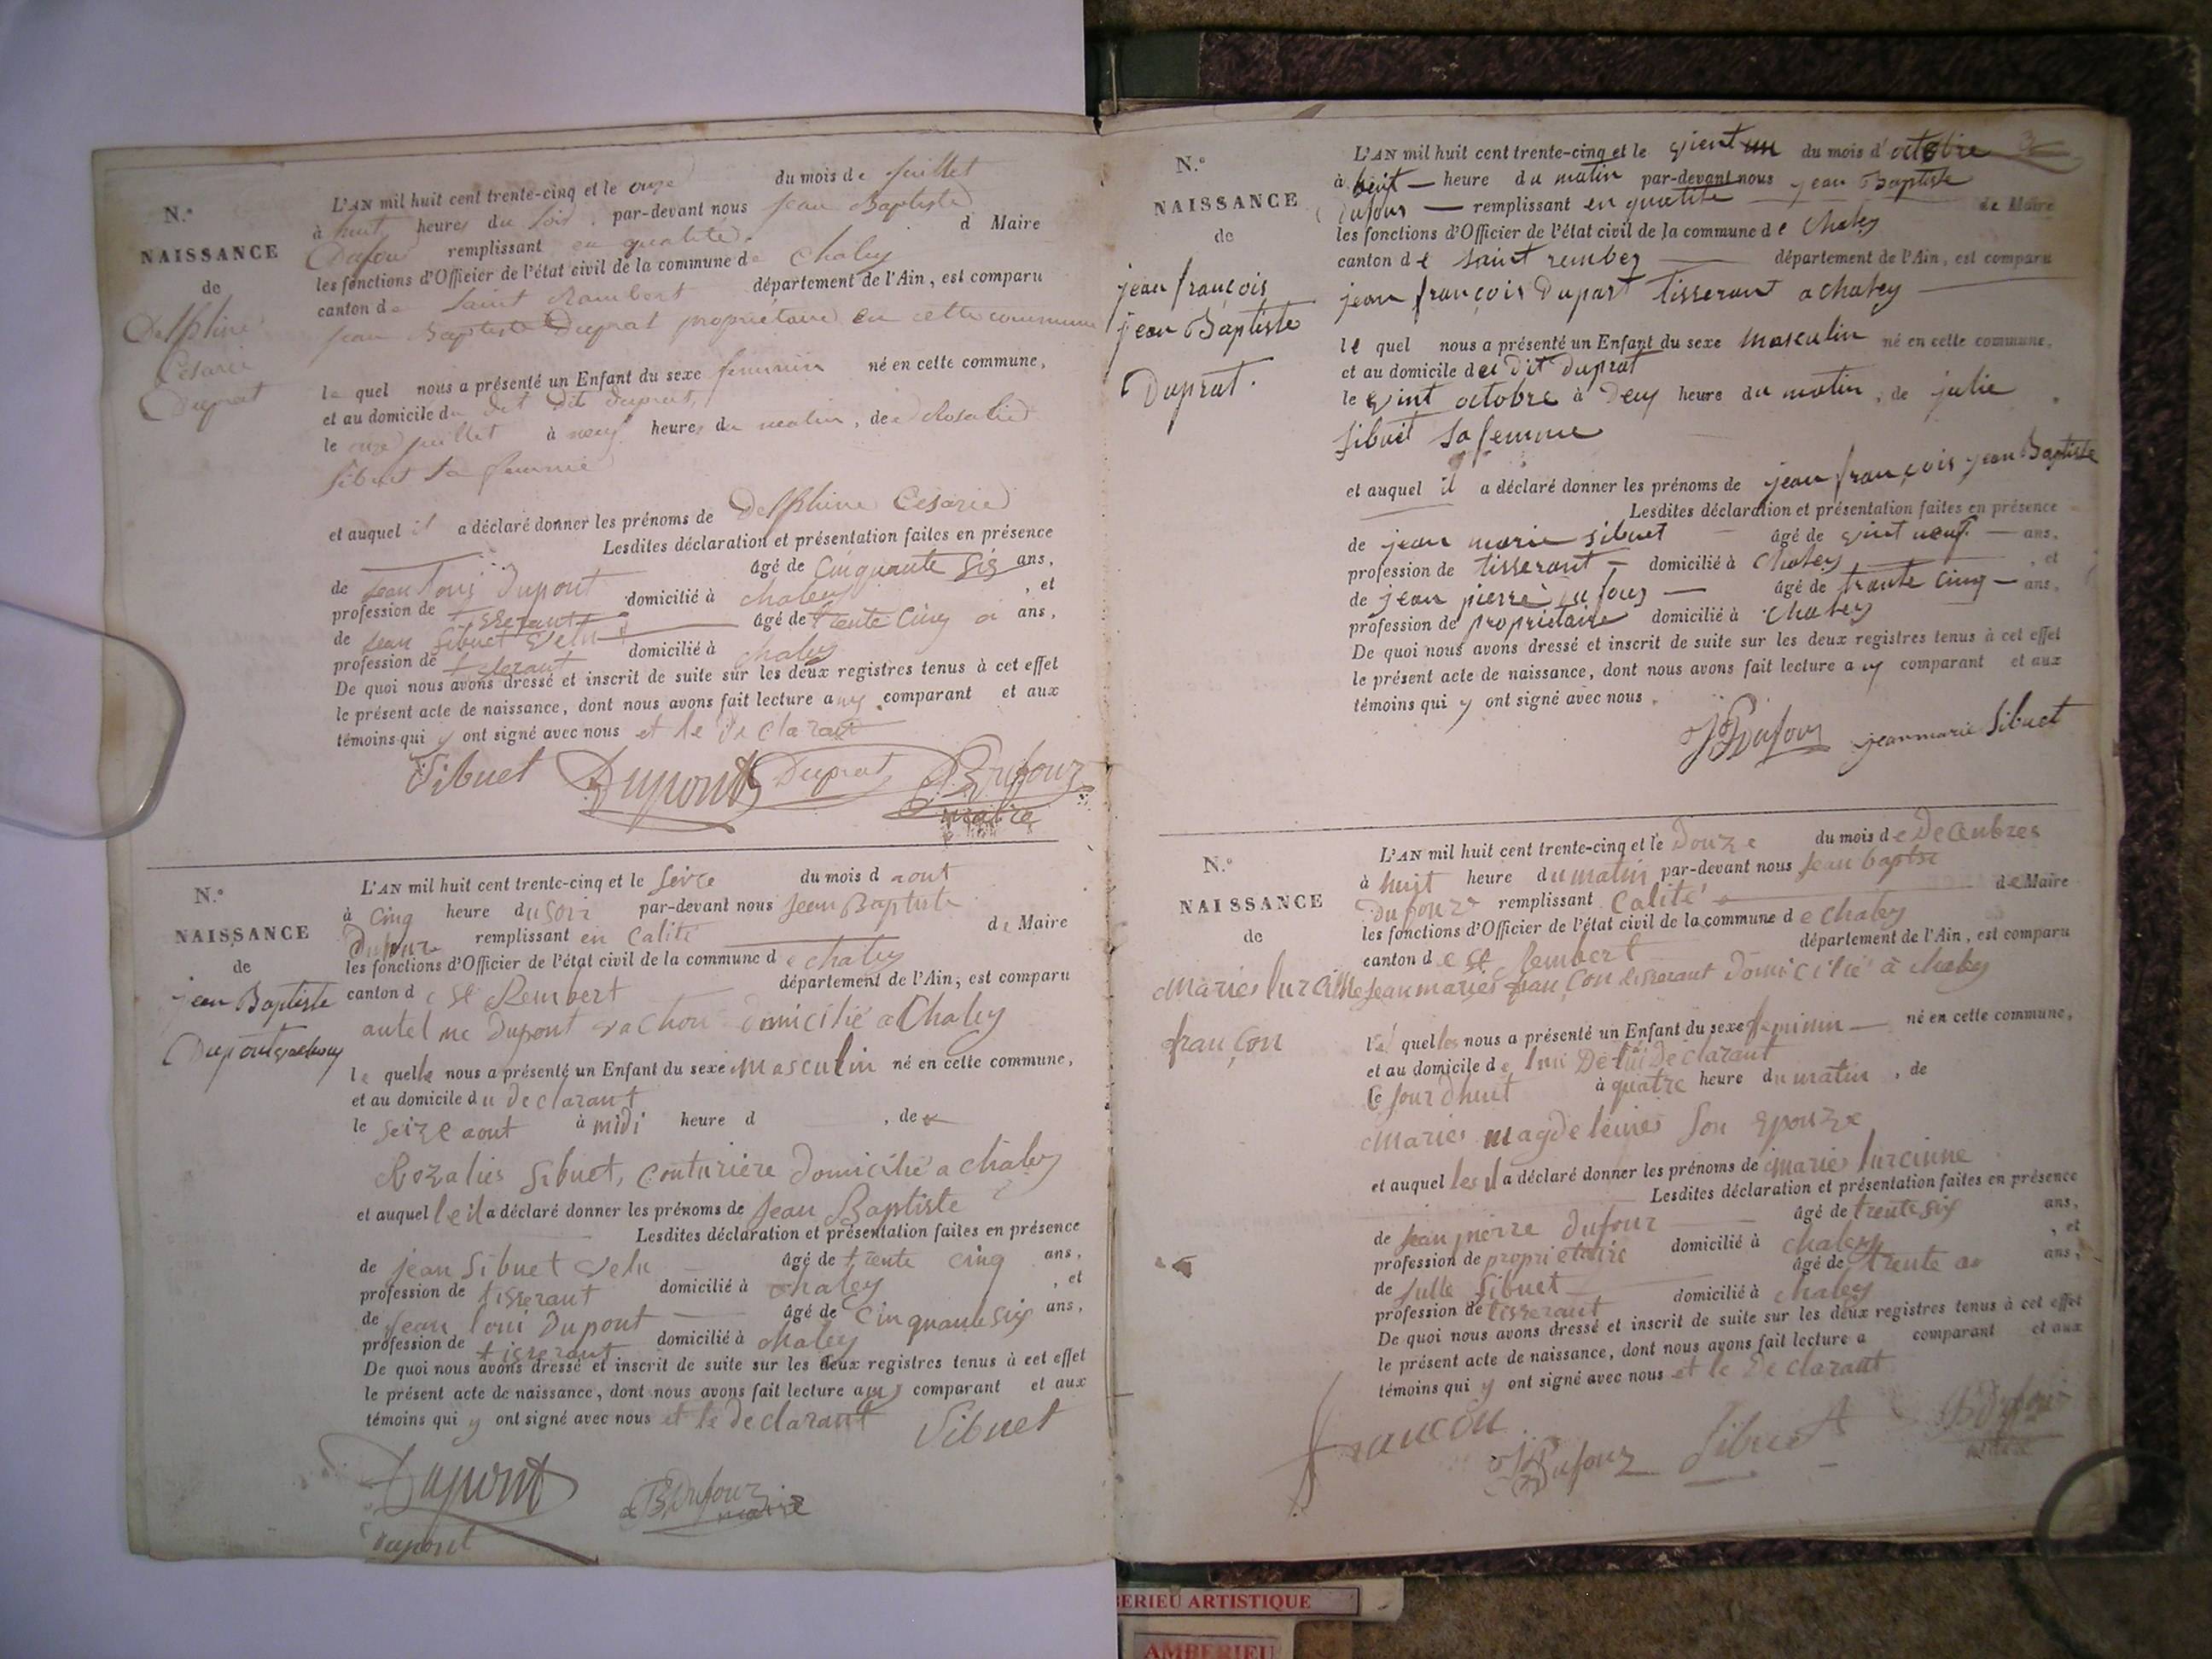 N.º
NAISSANCE
de
Delphine
Césarie
Duprat
L'AN mil huit cent trente-cinq et le onze du mois de juillet
à huit heures du soir, par-devant nous jean Baptiste
Dufour remplissant en qualité d Maire
les fonctions d'Officier de l'état civil de la commune de Chaley
canton de Saint Rambert département de l'Ain, est comparu
jean Baptiste Duprat propriétaire en cette commune
le quel nous a présenté un Enfant du sexe feminin né en cette commune,
et au domicile du dit Duprat,
le onze juillet à neuf heures du matin, de Rosalie
Sibuet sa femme
et auquel il a déclaré donner les prénoms de Delphine Césarie
Lesdites déclaration et présentation faites en présence
de jean loui Dupont âgé de Cinquante Six ans,
profession de tisserant domicilié à chaley , et
de jean Sibuet Velu âgé de trente Cinq ans,
profession de domicilié à chaley
De quoi nous avons dressé et inscrit de suite sur les deux registres tenus à cet effet
le présent acte de naissance, dont nous avons fait lecture au comparant et aux
témoins qui y ont signé avec nous et le declarant
Sibuet Dupont Duprat BDufour
maire
N.º
NAISSANCE
de
jean Baptiste
Dupont vachon
L'AN mil huit cent trente-cinq et le Seize du mois d aout
à Cinq heure du soir par-devant nous jean Baptiste
Dufour remplissant en Calité de Maire
les fonctions d'Officier de l'état civil de la commune de chaley
canton de St Rembert département de l'Ain, est comparu
antelme Dupont vachon domicilié a Chaley
le quelle nous a présenté un Enfant du sexe masculin né en cette commune,
et au domicile du declarant
le Seize aout à midi heure d , de
Rozalies Sibuet, Couturiere domicilié a chaley
et auquel le il a déclaré donner les prénoms de jean Baptiste
Lesdites déclaration et présentation faites en présence
de jean Sibuet velu âgé de trente cinq ans,
profession de tisserant domicilié à chaley , et
de jean loui Dupont âgé de Cinquante six ans,
profession de tisserant domicilié à chaley
De quoi nous avons dressé et inscrit de suite sur les deux registres tenus à cet effet
le présent acte de naissance, dont nous avons fait lecture au comparant et aux
témoins qui y ont signé avec nous et le declarant
Sibuet
Dupont BDufour
maire
Dupont
N.º
NAISSANCE
de
jean françois
jean Baptiste
Duprat.
L'AN mil huit cent trente-cinq et le vient un du mois d'octobre
à heure du matin par-devant nous jean Baptiste
Dufour remplissant en qualité de Maire
les fonctions d'Officier de l'état civil de la commune de Chaley
canton de saint département de l'Ain, est comparu
jean françois Dupart tisserant a chaley
le quel nous a présenté un Enfant du sexe masculin né en cette commune,
et au domicile du dit duprat
le vint octobre à deux heure du matin, de julie
Sibuet sa femme
et auquel il a déclaré donner les prénoms de jean françois jean Baptiste
Lesdites déclaration et présentation faites en présence
de jean marie Sibuet âgé de vint neuf ans,
profession de tisserant domicilié à Chaley , et
de jean pierre Dufour âgé de trante cinq ans,
profession de propriétaire domicilié à Chaley
De quoi nous avons dressé et inscrit de suite sur les deux registres tenus à cet effet
le présent acte de naissance, dont nous avons fait lecture au comparant et aux
témoins qui y ont signé avec nous.
JPDufour jeanmarie Sibuet
N.º
NAISSANCE
de
Maries lurcinne
françon
L'AN mil huit cent trente-cinq et le Douze du mois de Decenbres
à huit heure du matin par-devant nous jean
Dufour remplissant Calité de Maire
les fonctions d'Officier de l'état civil de la commune de Chaley
canton de St Rembert département de l'Ain, est comparu
jean maries françon tisserant domicilié à chaley
le quelles nous a présenté un Enfant du sexe feminin né en cette commune,
et au domicile de declarant
le jourdhuit à quatre heure du matin, de
Maries magdeleines Son Epouze
et auquel les il a déclaré donner les prénoms de maries lurcinne
Lesdites déclaration et présentation faites en présence
de jean pierre dufour âgé de trente six ans,
profession de proprietaire domicilié à chaley , et
de Sibuet âgé de trente ans,
profession de tisserant domicilié à chaley
De quoi nous avons dressé et inscrit de suite sur les deux registres tenus à cet effet
le présent acte de naissance, dont nous avons fait lecture a comparant et aux
témoins qui y ont signé avec nous et le declarant
francon JPDufour Sibuet BDufour
BERIEU ARTISTIQUE
AMBERIEU